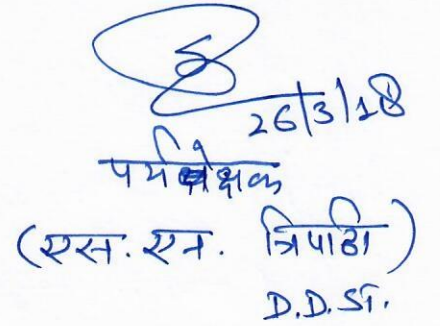 26/3/18
पर्यवेक्षक
(एस. एन. त्रिपाठी)
D.D. ST.